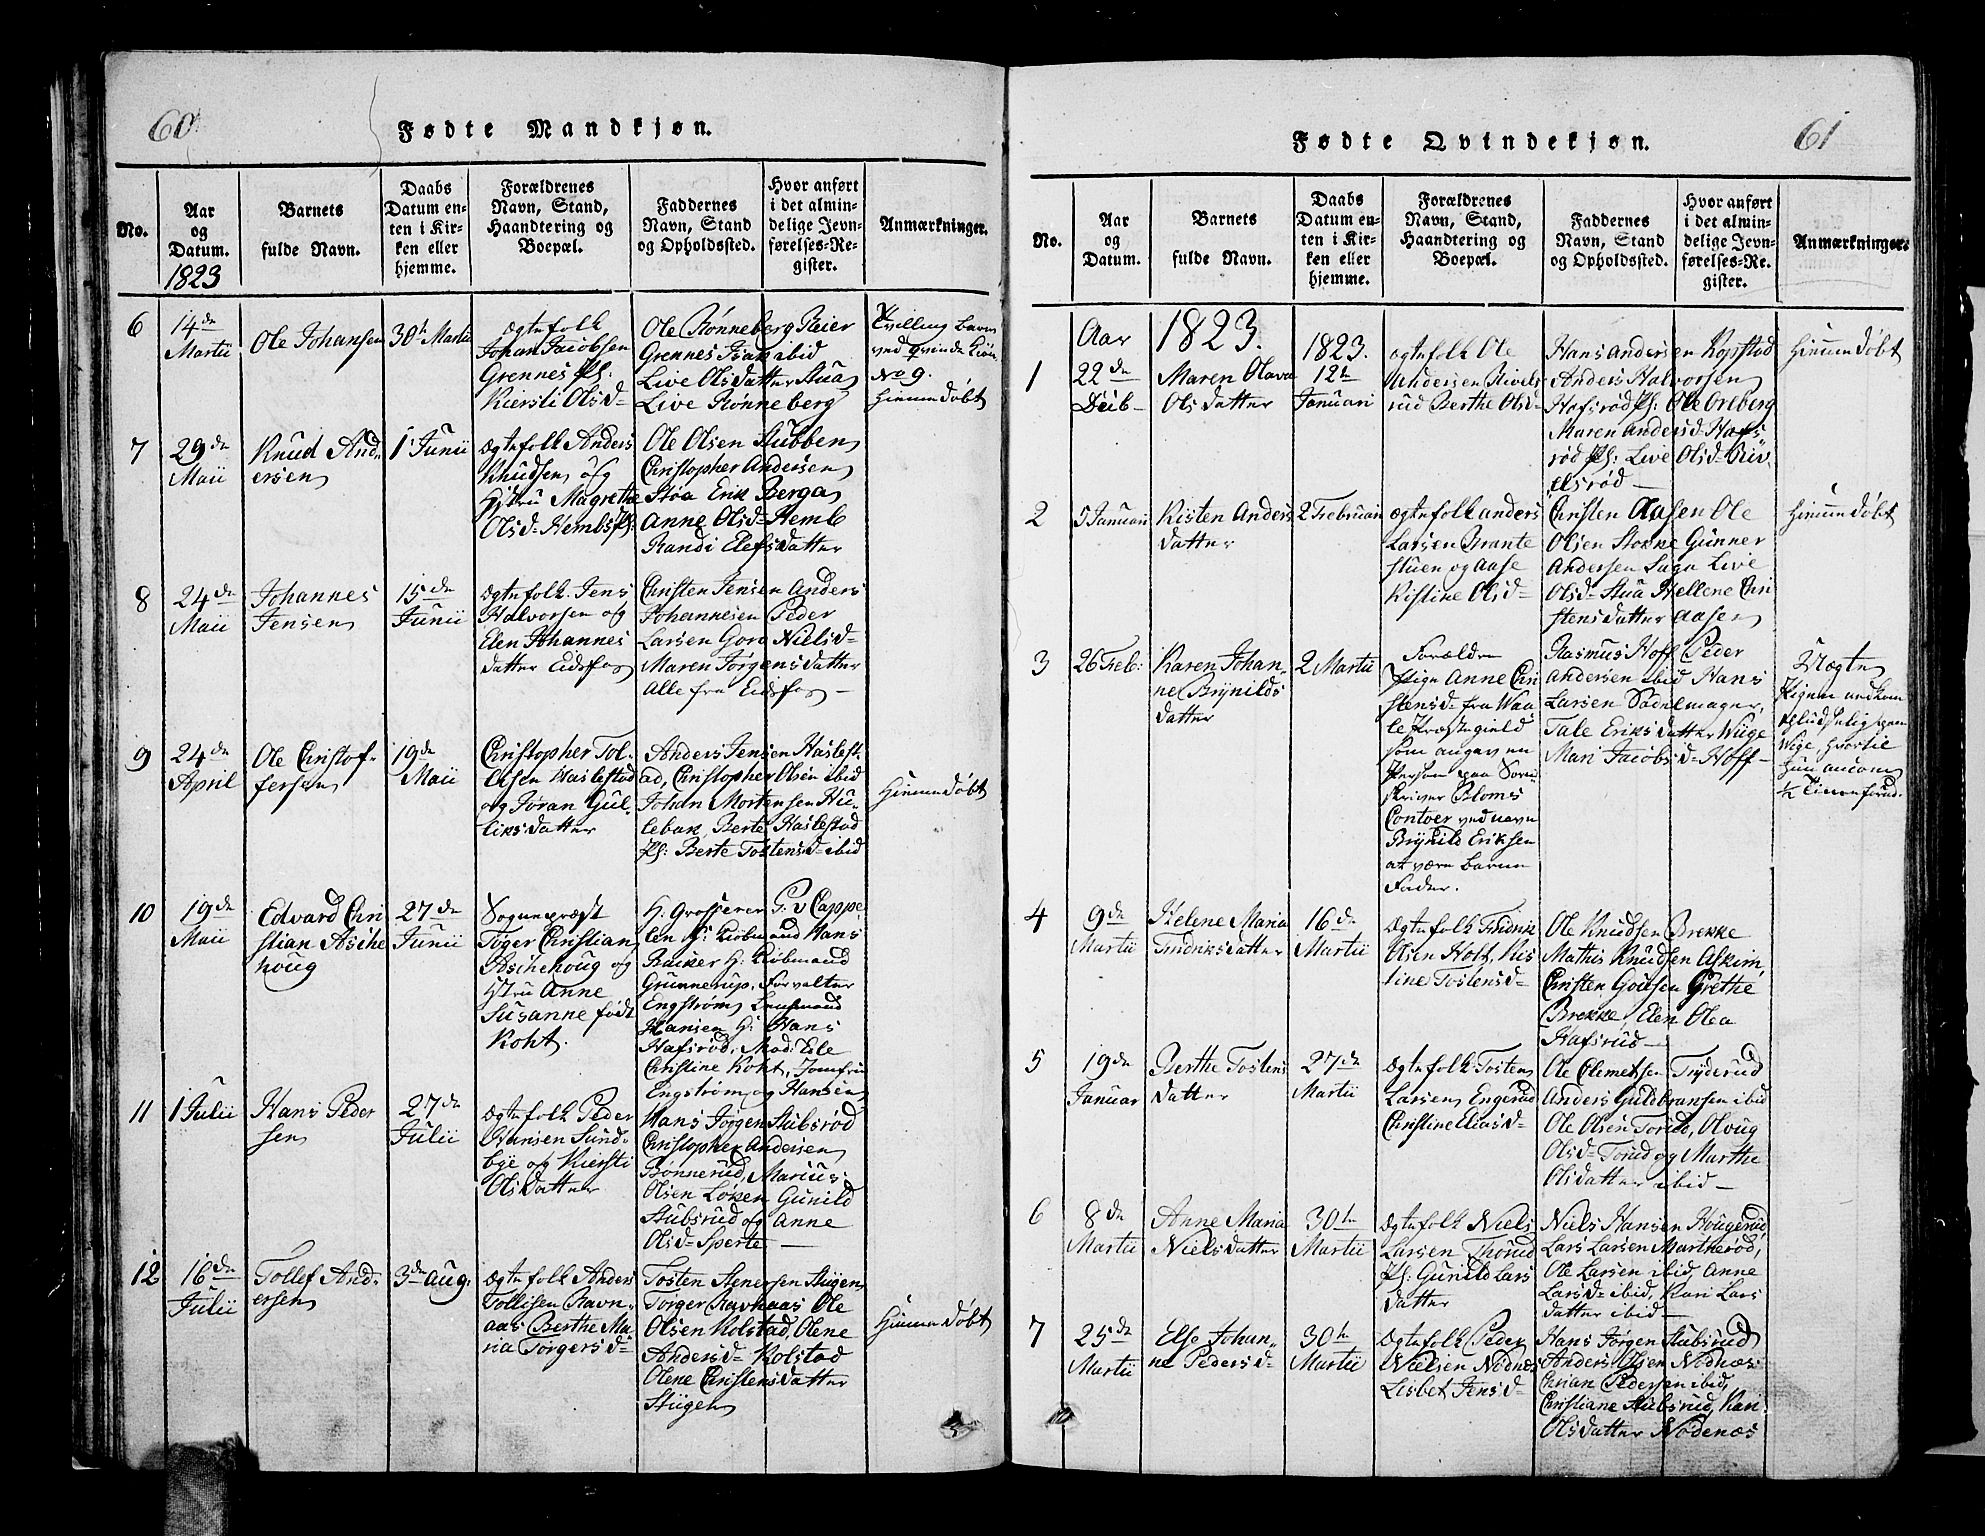 60
Fødte Mandkjøn.
No.
Aar
og
Datum.
1823
Barnets
fulde Navn.
Daabs
Datum en-
ten i Kir-
ken eller
hjemme.
Forældrenes
Navn, Stand,
Haandtering og
Boepæl.
Faddernes
Navn, Stand
og Opholdssted.
Hvor anført
i det almin-
delige Jevn-
førelses-Re-
gister.
Anmærkninger.
6
14de
Martii
Ole Johansen
30te Martii
Ægtefolk
Johan Jacobsen
Grennes Pl:
Kiersti Olsd-
Ole Rønneberg Reier
Grennes Isak ibid
Live Olsdatter Stua
Live Rønneberg
Tvilling barn
ved qvinde Kiøn
No 9.
Hiemme døbt
7
29de
Maii
Knud And-
ersen
1 Junii
Ægtefolk Anders
Knudsen og
Hstru Magrethe
Olsd- Hembs Pl:
Ole Olsen Stubben
Christopher Andersen
Støa Erik Berga
Anne Olsd- Hemb
Randi Elefsdatter
8
24de
Maii
Johannes
Jensen
15de
Junii
Ægtefolk Jens
Halvorsen og
Elen Johannes
datter Eidsfos
Christen Jensen Anders
Johannesen Peder
Larsen Goro Nielsd-
Maren Jørgensdatter
Alle fra Eidsfos
9
24de
April
Ole Christof-
fersen
19de
Maii
Christopher Tol-
lefsen Haslestad
og Jøran Gul-
leiksdatter
Anders Jensen Haslest-
ad, Christopher Olsen ibid
Johan Mortensen Hu-
lebak, Berte Haslestad
Pl: Berte Tostensd- ibid
Hiemme døbt
10
19de
Maii
Edvard Chri
stian Asche
houg
27de
Junii
Sognepræst
Toger Christian
Aschehoug og
Hstru Anne
Susanne født
Koht.
H: Grosserer P. v Cappe-
len Hr Kiøbmand Hans
Backer H: Kiøbmand
Grunnerup, Forvalter
Engstrøm Lensmand
Hansen H: Hans
Hafsrød, Mad: Eile
Christine Koht, Jomfru
Engstrøm og Hansen
11
1 Julii
Hans Peder
sen
27de
Julii
Ægtefolk Peder
Hansen Sund-
bye og Kiersti
Olsdatter
Hans Jørgen Stubsrød
Christopher Andersen
Bønnerud, Marius
Olsen Løken Gunild
Stubsrud og Anne
Olsd- Sperte
12
16de
Julii
Tollef And-
ersen
3de Aug:
Ægtefolk Anders
Tollefsen Ravn-
aas Berthe Ma-
ria Torgersd-
Tosten Agnersen Stugen
Torger Ravnaas Ole
Olsen Kolstad, Olene
Andersd- Kolstad
Olene Christensdatter
Stugen
Hiemme døbt
61
Fødte Qvindekjøn.
No.
Aar
og
Datum.
Barnets
fulde Navn.
Daabs
Datum en-
ten i Kir-
ken eller
hjemme.
Forældrenes
Navn, Stand,
Haandtering og
Boepæl.
Faddernes
Navn, Stand
og Opholdssted.
Hvor anført
i det almin-
delige Jevn-
førelses-Re-
gister.
Anmærkninger.
Aar 1823.
1823.
1
22de
Deib-
Maren Olava
Olsdatter
12te
Januari
Ægtefolk Ole
Andersen Rivels
rud Berthe Olsd-
Hans Andersen Kopstad
Anders Halvorsen
Hafsrød Pl: Ole Oreberg
Maren Andersd- Hafs
rød Pl: Live Olsd- Riv-
elsrød
Hiemme døbt
2
5 Januari
Kisten Anders
datter
2 Februari
Ægtefolk Anders
Larsen Brante
stuen og Aase
Kistine Olsd-
Christen Aasen Ole
Olsen Stokke Gunner
Andersen Saga Live
Olsd- Stua Hellene Chri
stensdatter Aasen
Hiemme døbt
3
26 Feb:
Karen Johan-
ne Brynilds
datter
2 Martii
Forældre
Pige Anne Chri
stensd- fra Waa
le Præstegield
som angav en
Person paa Soren
skriver Bloms
Contoer ved navn
Brynild Eriksen
at være barne
Fader.
Rasmus Hoff Peder
Andersen ibid Hans
Larsen Sadelmager,
Tale Eriksdatter Wiige
Mari Jacobsd- Hoff
Uægte
Wige, hvortil
hun ankom
4
9de
Martii
Helene Maria
Fredriksdatter
16de
Martii
Ægtefolk Fredrik
Olsen Holt, Kis
tine Tostensd-
Ole Knudsen Brekke
Mathis Knudsen Askim,
Christen Goulsen Grethe
Brekke, Elen Olea
Hafsrud
5
19de
Januar
Berthe Tostens
datter
27de
Martii
Ægtefolk Tosten
Larsen Engerud
Christine Eliasd-
Ole Clemetsen Tryderud
Anders Guldbransen ibid
Ole Olsen Torud, Olvug
Olsd- Torud og Marthe
Olsdatter ibid
6
8de
Martii
Anne Maria
Nielsdatter
30te
Martii
Ægtefolk Niels
Larsen Thorud
Pl: Gunild Lars
datter
Niels Hansen Hougerud
Lars Larsen Martherød,
Ole Larsen ibid, Anne
Larsd- ibid, Kari Lars
datter ibid
7
25de
Martii
Else Johan-
ne Pedersd-
30te
Martii
Ægtefolk Peder
Nielsen Nødnes
Lisbet Jensd-
Hans Jørgen Stubsrud
Anders Olsen Nødnæs
Chrian Pedersen ibid,
Christiane Stubsrud, Kari
Olsdatter Nødenæs